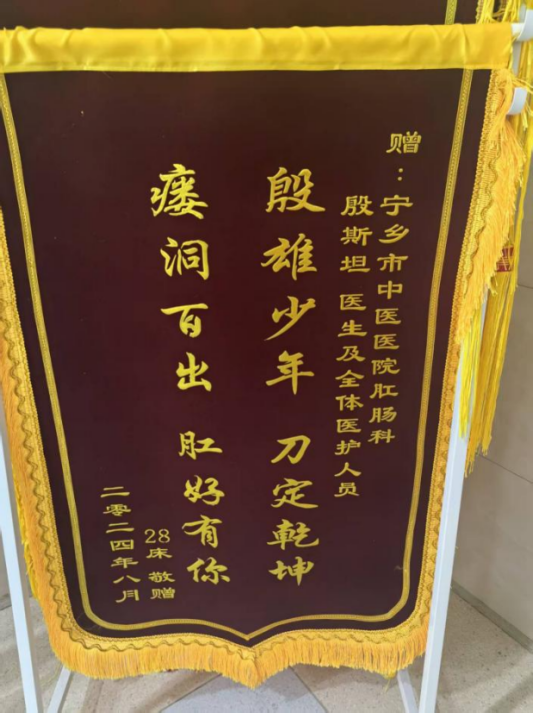 赠：宁乡市中医医院肛肠科
殷斯坦 医生及全体医护人员
殷雄少年 刀定乾坤
瘘洞百出 肛好有你
28床 敬赠
二零二四年八月